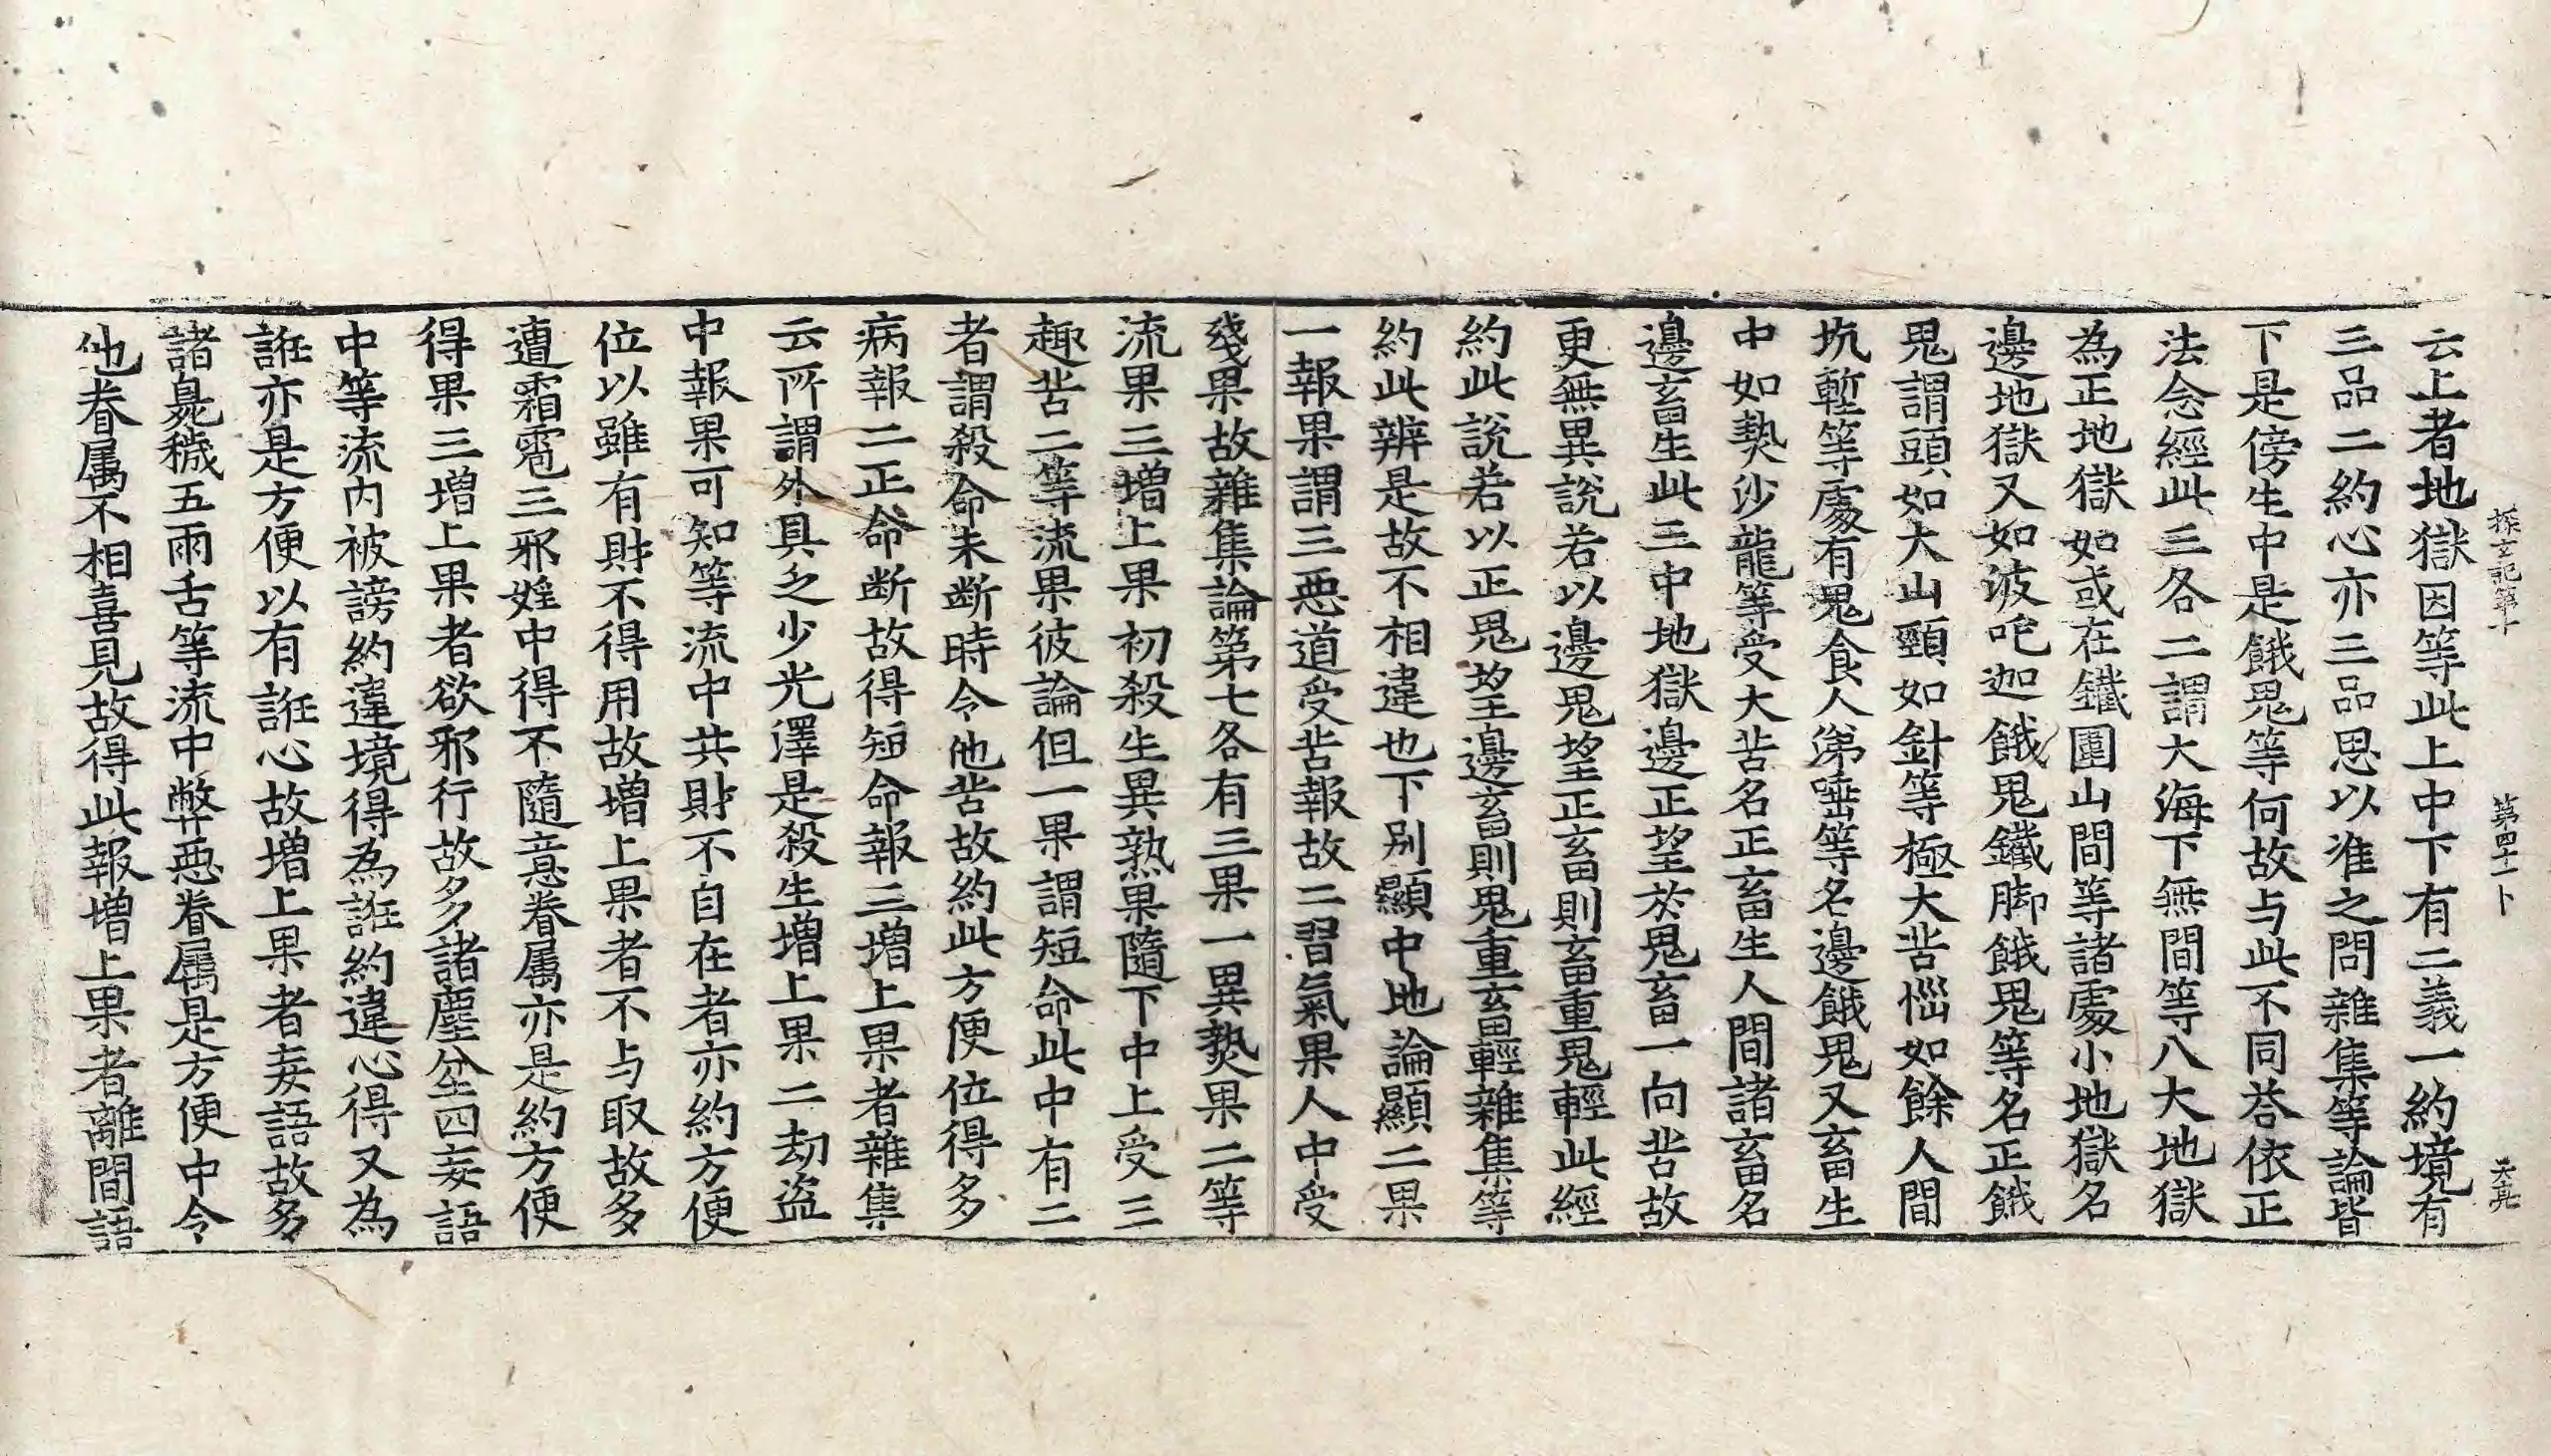 探玄記第十 第四十一卜 天亮
云上者地獄因等此上中下有二義一約境有
三品二約心亦三品思以准之問雜集等論皆
下是傍生中是餓鬼等何故与此不同荅依正
法念經此三各二謂大海下無間等八大地獄
為正地獄如或在鐵圍山間等諸處小地獄名
邊地獄又如波吒迦餓鬼鐵脚餓鬼等名正餓
鬼謂頭如大山頸如針等極大苦惱如餘人間
坑塹等處有鬼食人涕唾等名邊餓鬼又畜生
中如熱沙龍等受大苦名正畜生人間諸畜名
邊畜生此三中地獄邊正望於鬼畜一向苦故
更無異說若以邊鬼望正畜則畜重鬼輕此經
約此說若以正鬼望邊畜則鬼重畜輕雜集等
約此辨是故不相違也下別顯中地論顯二果
一報果謂三惡道受苦報故二習氣果人中受
殘果故雜集論第七各有三果一異熟果二等
流果三増上果初殺生異熟果隨下中上受三
趣苦二等流果彼論但一果謂短命此中有二
者謂殺命未断時令他苦故約此方便位得多
病報二正命断故得短命報三増上果者雜集
云所謂外具乏少光澤是殺生増上果二劫盜
中報果可知等流中共財不自在者亦約方便
位以雖有財不得用故増上果者不与取故多
遭霜雹三邪婬中得不隨意眷属亦是約方便
得果三増上果者欲邪行故多諸塵坌四妄語
中等流内被謗約違境得為誑約違心得又為
誑亦是方便以有誑心故増上果者妄語故多
諸臭穢五兩舌等流中弊惡眷属是方便中令
他眷属不相喜見故得此報増上果者離間語